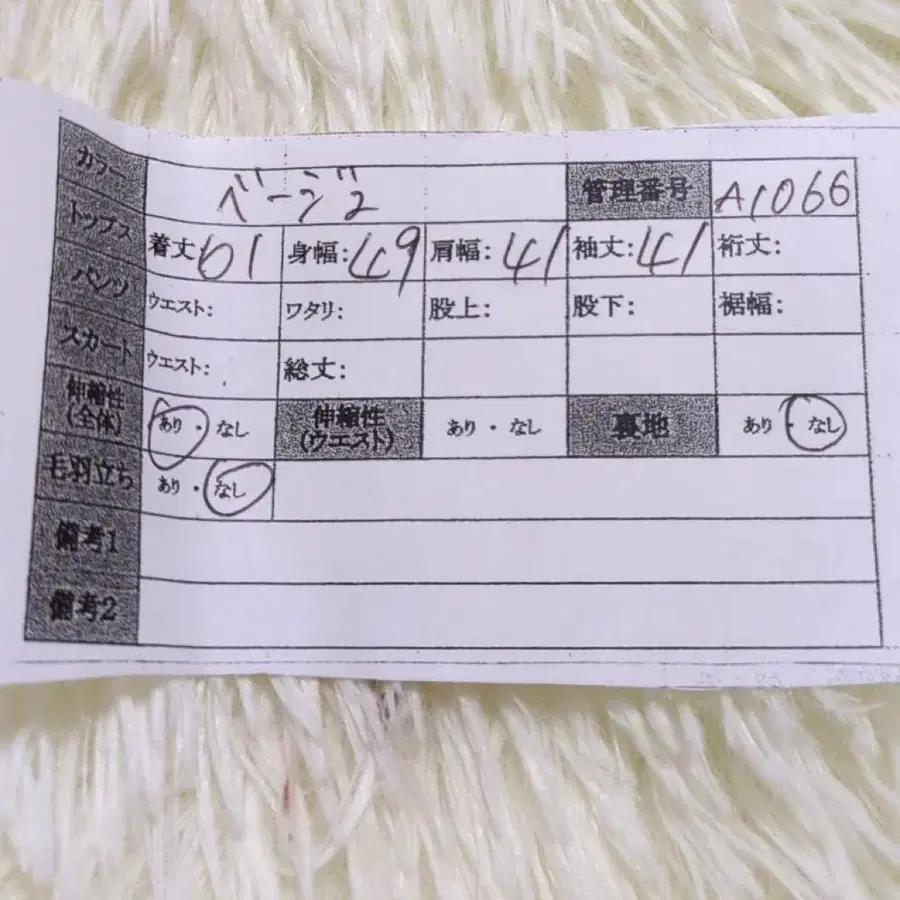 カラー ベージュ 管理番号 A1066
トップス 着丈 61 身幅: 49 肩幅: 41 袖丈: 41 裄丈:
パンツ ウエスト: ワタリ: 股上: 股下: 裾幅:
スカート ウエスト: 総丈:
伸縮性(全体) あり・なし 伸縮性(ウエスト) あり・なし 裏地 あり・なし
毛羽立ち あり・なし
備考1
備考2